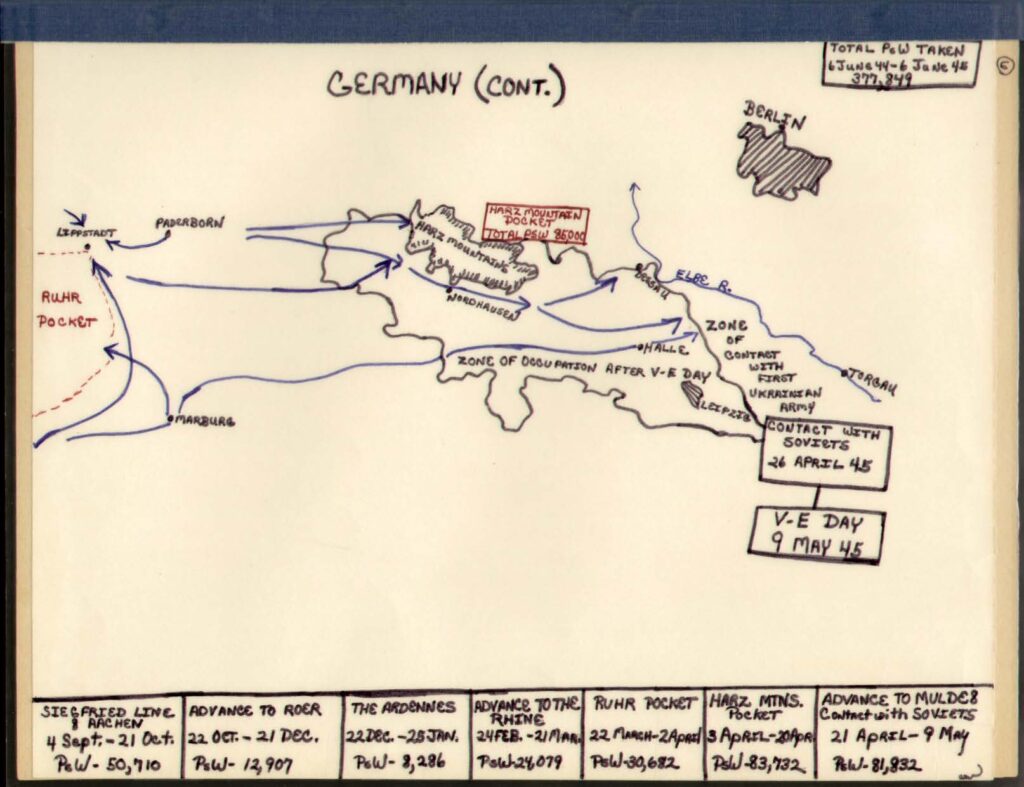 TOTAL PsW TAKEN
6 June 44-6 June 45
377,849
GERMANY (CONT.)
BERLIN
PADERBORN
LIPPSTADT
HARZ MOUNTAIN
POCKET
TOTAL PsW 85000
HARZ MOUNTAINS
ELBE R.
RUHR
POCKET
NORDHAUSEN
ZONE
OF
CONTACT
WITH
FIRST
UKRAINIAN
ARMY
HALLE
ZONE OF OCCUPATION AFTER V-E DAY
TORGAU
LEIPZIG
MARBURG
CONTACT WITH
SOVIETS
26 APRIL 45
V-E DAY
9 MAY 45
SIEGFRIED LINE
& AACHEN
4 Sept. - 21 Oct.
PsW - 50,710
ADVANCE TO ROER
22 OCT. - 21 DEC.
PsW - 12,907
THE ARDENNES
22 DEC. - 25 JAN.
PsW - 8,286
ADVANCE TO THE
RHINE
24 FEB. - 21 MAR.
PsW-
RUHR POCKET
22 MARCH-2 April
PsW-30,682
HARZ MTNS.
Pocket
3 APRIL-20 Apr
PsW-83,732
ADVANCE TO MULDE &
Contact with SOVIETS
21 APRIL - 9 May
PsW-81,832